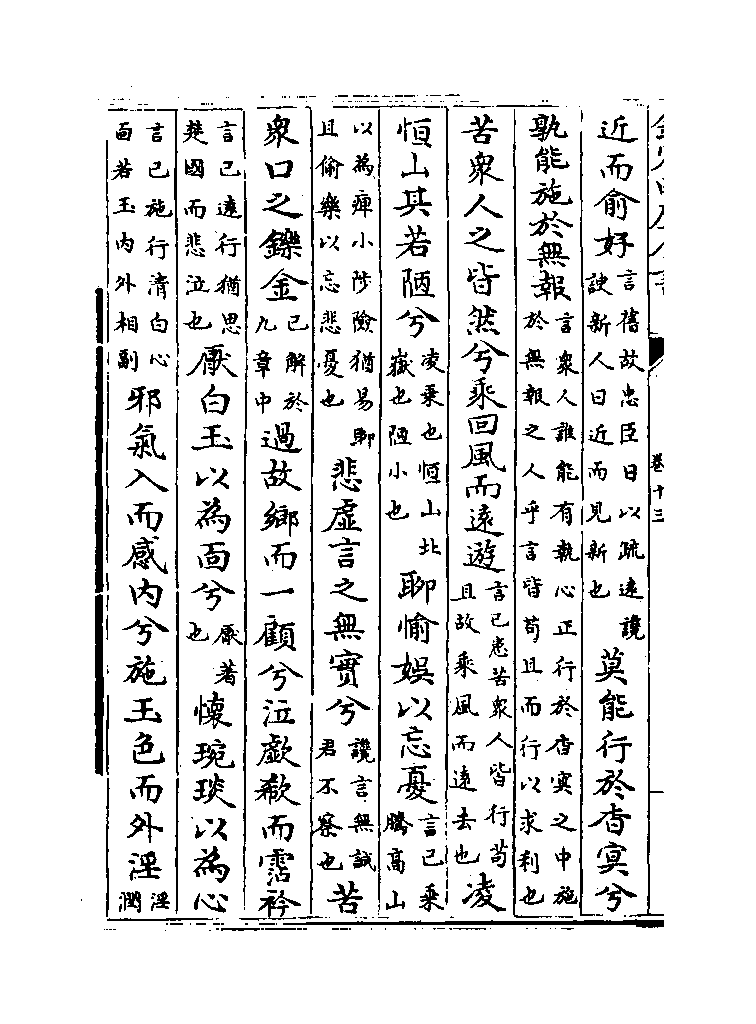 卷十三
近而俞好言舊故忠臣日以疏遠讒諛新人日近而見新也莫能行於杳冥兮
孰能施於無報言衆人誰能有執心正行於杳冥之中施於無報之人乎言皆苟且而行以求利也
苦衆人之皆然兮乘回風而遠遊言己患苦衆人皆行苟且故乘風而遠去也凌
恒山其若陋兮凌乘也恒山北嶽也陋小也聊愉娛以忘憂言己乘騰高山
以為痺小陟險猶易聊且偷樂以忘悲憂也悲虛言之無實兮讒言無誠君不察也苦
衆口之鑠金已解於九章中過故鄉而一顧兮泣歔欷而霑衿
言己遠行猶思楚國而悲泣也厭白玉以為面兮厭著也懷琬琰以為心
言己施行清白心面若玉內外相副邪氣入而感內兮施玉色而外淫淫潤